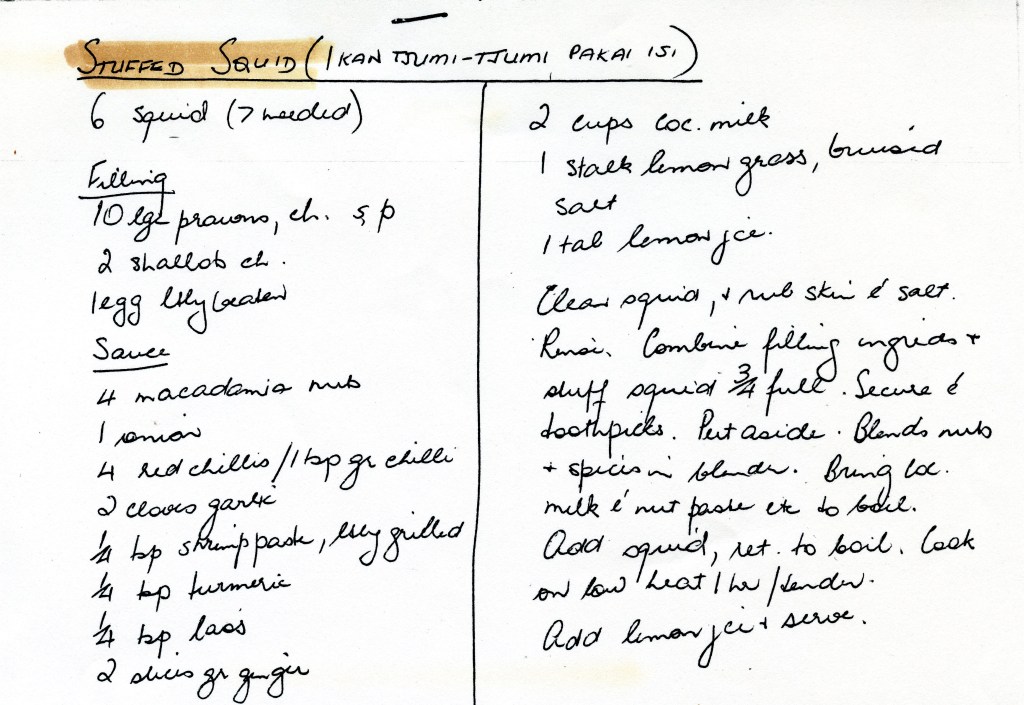 STUFFED SQUID (IKAN TJUMI-TJUMI PAKAI ISI)
6 squid (7 needed)
Filling
10 lge prawns, ch. s, p
2 shallots ch.
1 egg ltly beaten
Sauce
4 macadamia nuts
1 onion
4 red chillis / 1 tsp gr chilli
2 cloves garlic
1/4 tsp shrimp paste, ltly grilled
1/4 tsp turmeric
1/4 tsp laos
2 slices gr ginger
2 cups coc. milk
1 stalk lemon grass, bruised
salt
1 tab lemon jce.
Clean squid, + rub skin c̄ salt.
Rinse. Combine filling ingreds +
stuff squid 3/4 full. Secure c̄
toothpicks. Put aside. Blends nuts
+ spices in blender. Bring coc.
milk c̄ nut paste etc to boil.
Add squid, ret. to boil. Cook
on low heat 1 hr / tender.
Add lemon jce + serve.